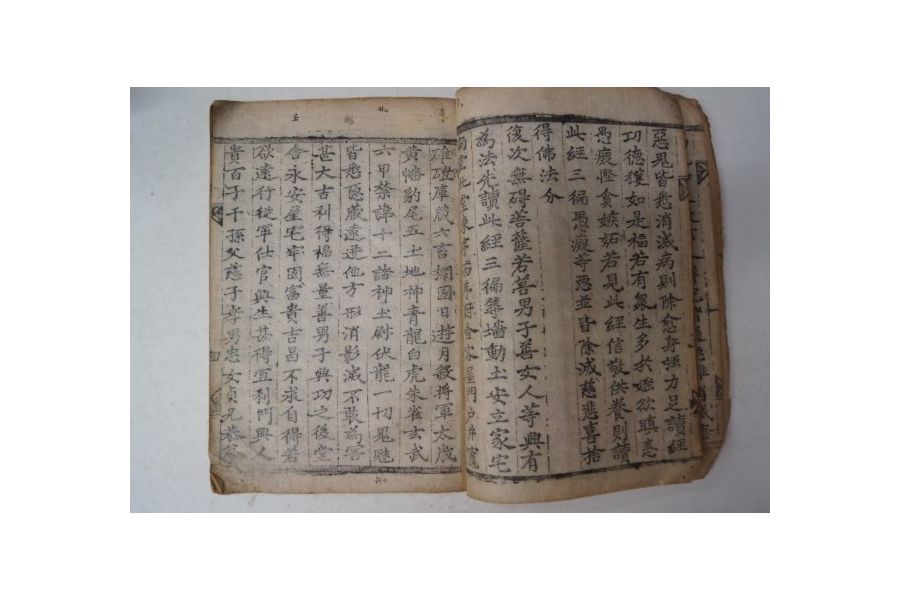 惡鬼皆悉消滅病則除愈身强力足讀經
功德獲如是福若有衆生多於婬欲瞋恚
愚癡慳貪嫉妬若見此經信敬供養則讀
此經三徧愚癡等惡並皆除滅慈悲喜捨
得佛法分
復次無碍菩薩若善男子善女人等興有
為法先讀此經三徧築墻動土安立家宅
南堂北堂東序西序厨舍客屋門戶井竈
碓磑庫藏六畜欄圂日遊月殺將軍太歲
黃幡豹尾五土地神青龍白虎朱雀玄武
六甲禁諱十二諸神土尉伏龍一切鬼魅
皆悉隱藏遠迸他方形消影滅不敢為害
甚大吉利得福無量善男子興功之後堂
舍永安屋宅牢固富貴吉昌不求自得若
欲遠行從軍仕官興生甚得宜利門興人
貴百子千孫父慈子孝男忠女貞兄恭